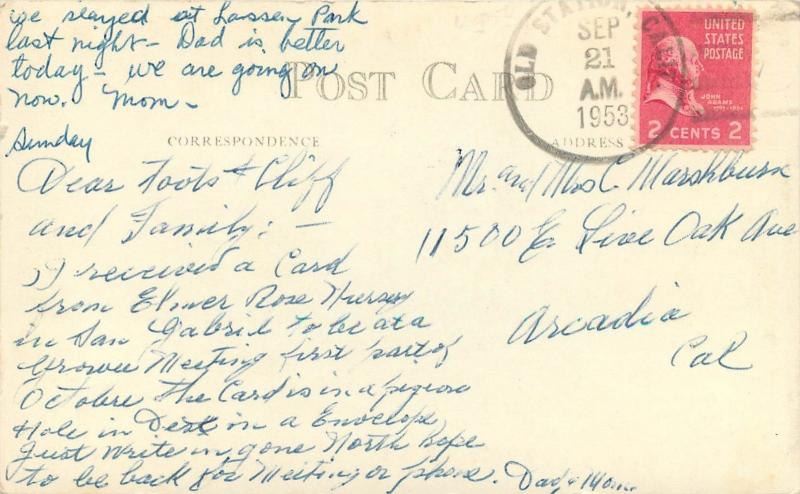 we stayed at Lassen Park
last night - Dad is better
today - we are going on
now. Mom -
POST CARD
OLD STATION, CALIF.
SEP
21
A.M.
1953
UNITED
STATES
POSTAGE
JOHN
ADAMS
2 CENTS 2
Sunday
CORRESPONDENCE
ADDRESS
Dear Toots & Cliff
and Family: -
I received a Card
from Elmer Rose Nursery
in San Gabriel to be at a
Grower Meeting first part of
Octobre the Card is in a pigion
Hole in Desk in a Envelope
Just Write im gone North Hope
to be back for Meeting or phone. Dad & Mom.
Mr. and Mrs C. Marshburn
11500 E. Live Oak Ave
Arcadia
Cal